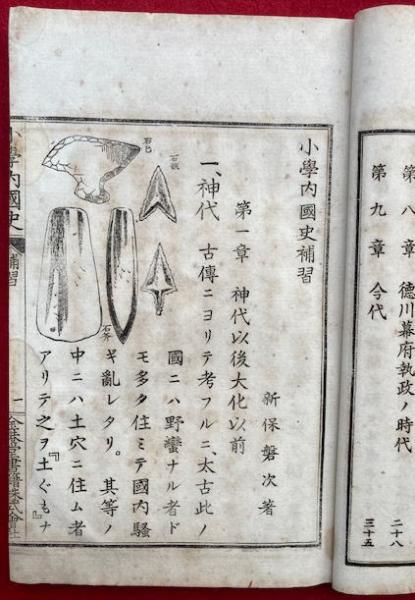 第八章 德川幕府執政ノ時代 二十八
第九章 今代 三十五
小學內國史補習
新保磐次著
第一章 神代以後大化以前
一、神代 古傳ニヨリテ考フルニ、太古此ノ
國ニハ野蠻ナル者ド
モ多ク住ミテ國內騷
ギ亂レタリ。其等ノ
中ニハ土穴ニ住ム者
アリテ之ヲ『土ぐも』ナ
石鏃
石匕
石斧
小學內國史 補習 一 金港堂書籍株式會社